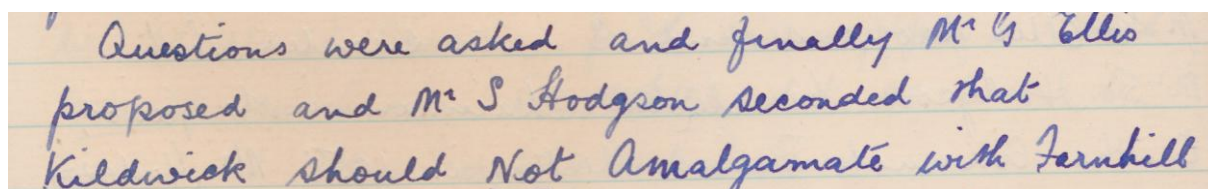 Questions were asked and finally Mr G Ellis
proposed and Mr S Hodgson seconded that
Kildwick should Not Amalgamate with Farnhill